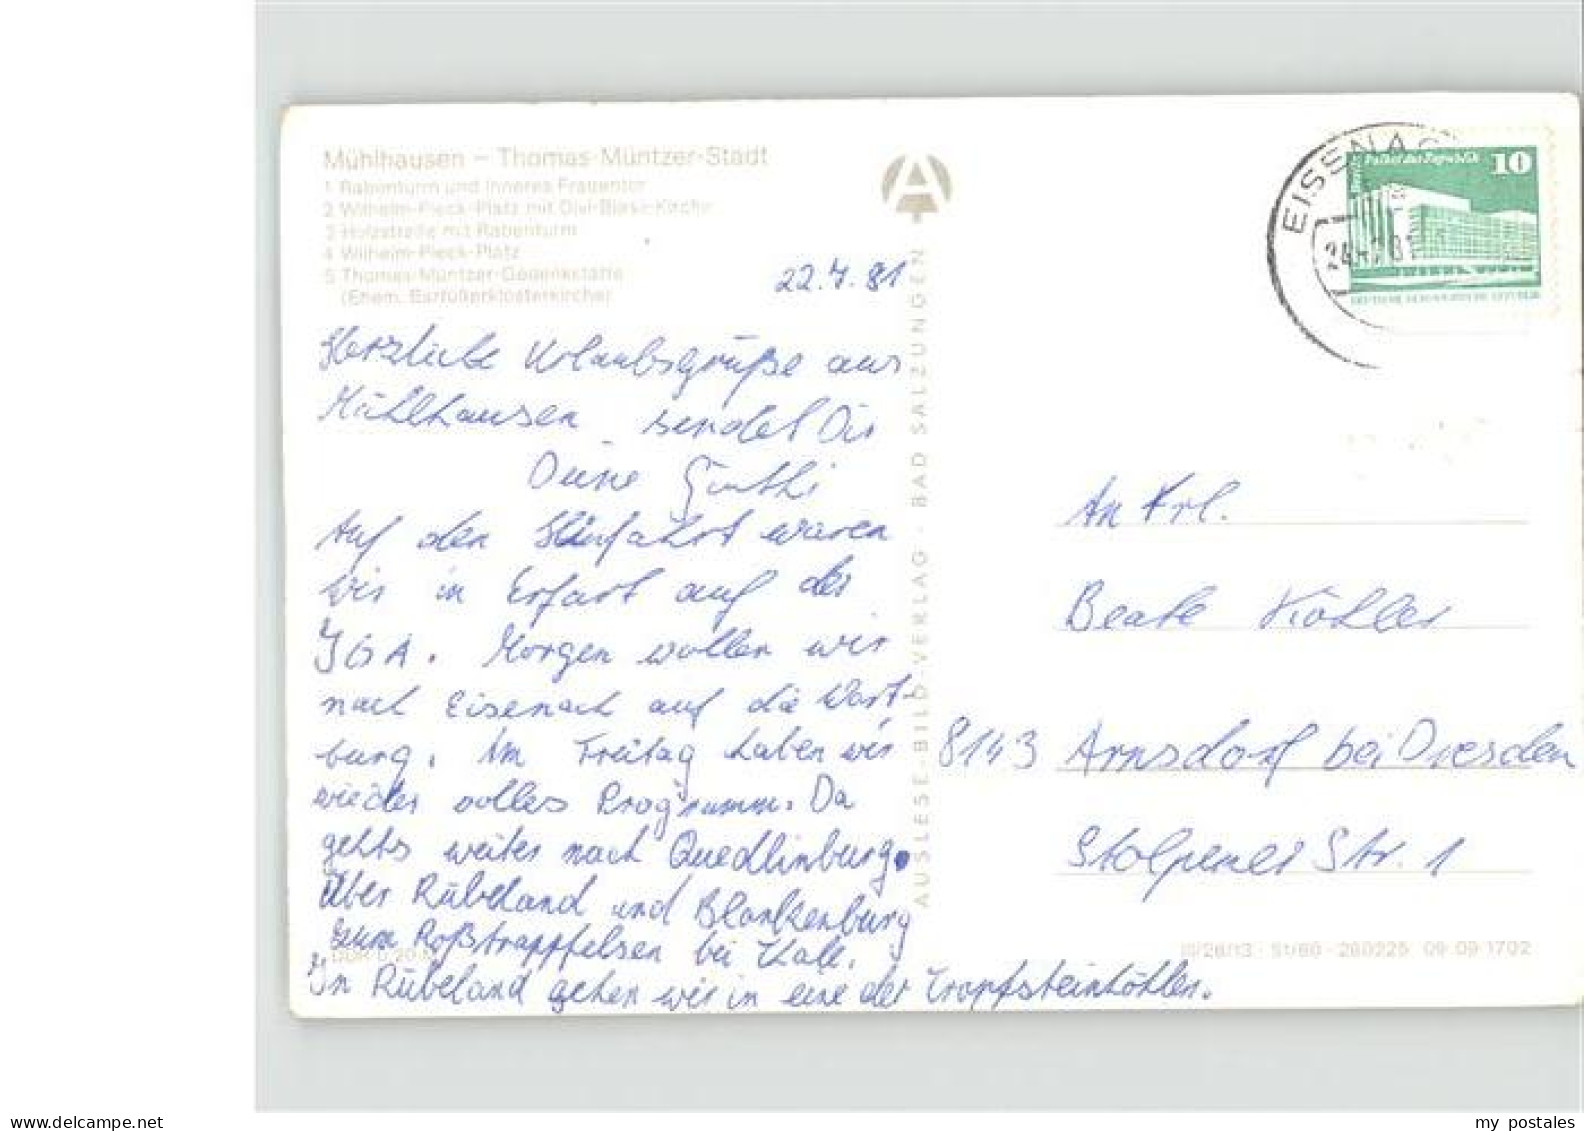 Mühlhausen – Thomas-Müntzer-Stadt
1 Rabenturm und Inneres Frauentor
2 Wilhelm-Pieck-Platz mit Divi-Blasii-Kirche
3 Holzstraße mit Rabenturm
4 Wilhelm-Pieck-Platz
5 Thomas-Müntzer-Gedenkstätte
(Ehem. Barfüßerklosterkirche)
22.7.81
Herzliche Urlaubsgrüße aus
Mühlhausen sendet Dir
Deine
Auf der Hinfahrt waren
wir in Erfurt auf der
IGA. Morgen wollen wir
nach Eisenach auf die Wart-
burg. Am Freitag haben wir
wieder volles Programm. Da
gehts weiter nach Quedlinburg.
Über Rübeland und Blankenburg
zum Roßtrappfelsen bei Thale.
In Rübeland gehen wir in eine der Tropfsteinhöhlen.
DDR 0,20 M
AUSLESE-BILD-VERLAG · BAD SALZUNGEN
A
EISENAC
24.-7.81
Palast der Republik 10
DEUTSCHE DEMOKRATISCHE REPUBLIK
An Frl.
Beate Köhler
8143 Arnsdorf bei Dresden
Stolpener Str. 1
III/26/13 · St/80 · 260225 09 09 1702
www.delcampe.net
my_postales